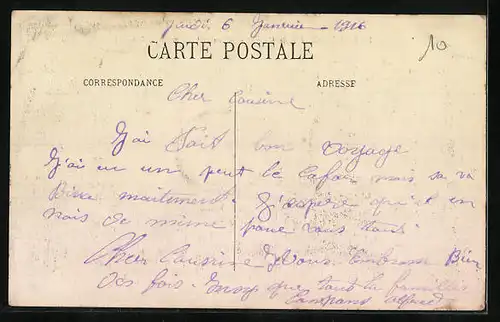 Jeudi 6 Janvier - 1916
10
CARTE POSTALE
CORRESPONDANCE
ADRESSE
Cher Cousine
J'ai fait bon voyage
J'ai eu un peut le cafar mais sa va
Bien maitement. J'espère qu'il en
de mime pour vous tous
Cher Cousine Je vous Embrasse Bien
Des fois. que tout la famille
Alfred